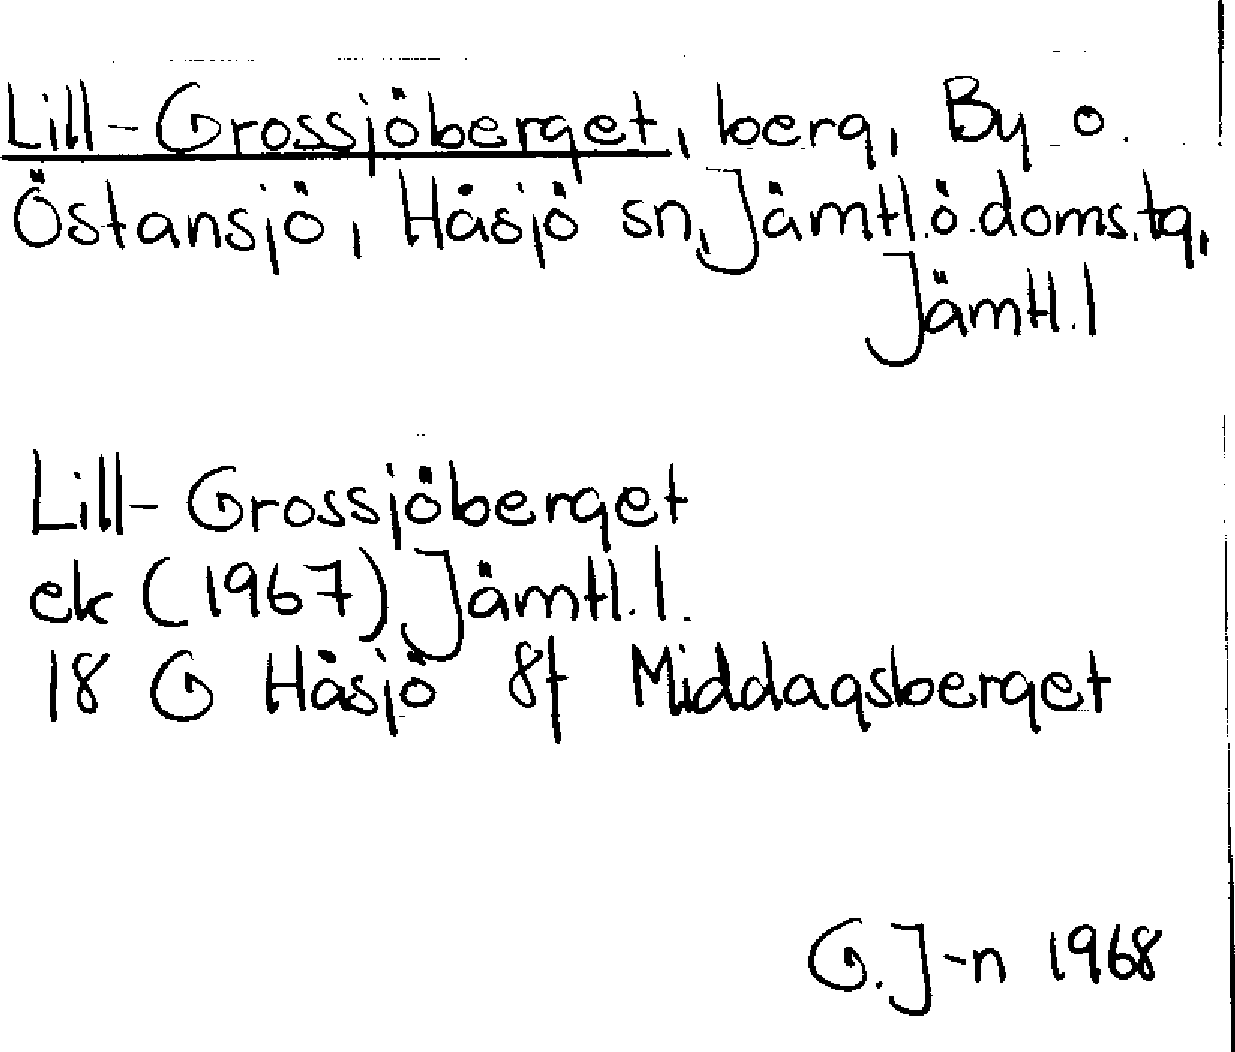 Lill-Grossjöberget, berg, By o.
Östansjö, Håsjö sn, Jämtl.ö.doms.tg,
Jämtl.l
Lill-Grossjöberget
ek (1967) Jämtl.l.
18 G Håsjö 8f Middagsberget
G.J-n 1968